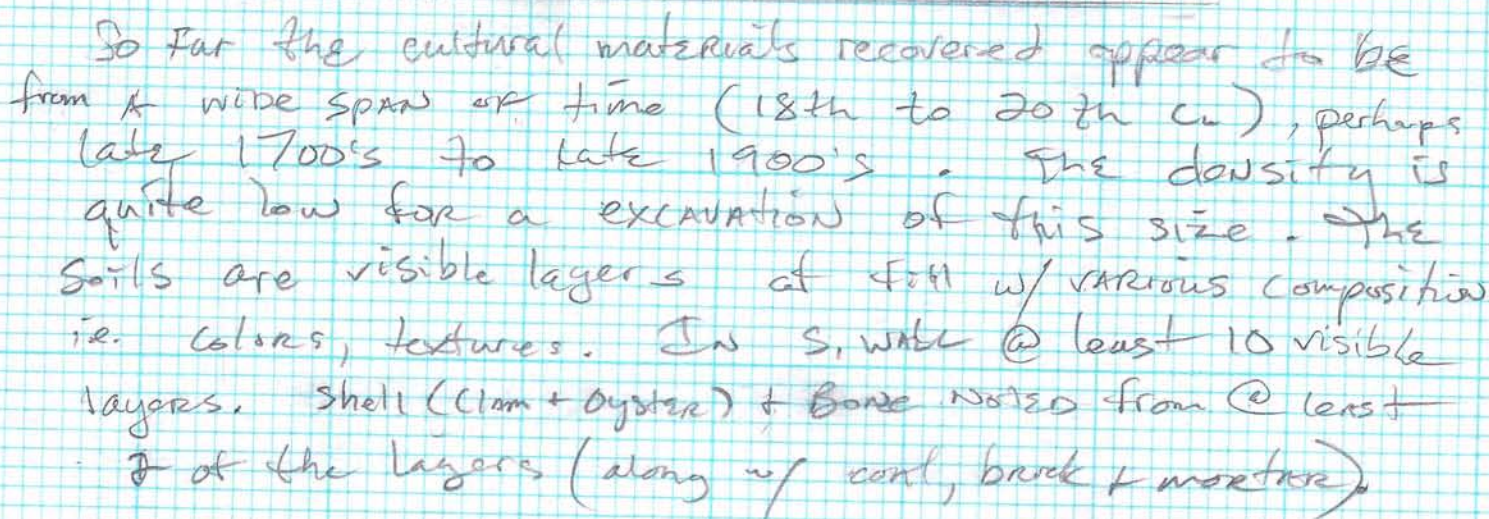 So Far the cultural materials recovered appear to be
from A wide span of time (18th to 20th C.), perhaps
late 1700's to late 1900's. The density is
quite low for a excavation of this size. The
Soils are visible layers of fill w/ various composition
i.e. colors, textures. In S. wall @ least 10 visible
layers. Shell (Clam + Oyster) + Bone Noted from @ least
of the layers (along w/ coal, brick + mortar).